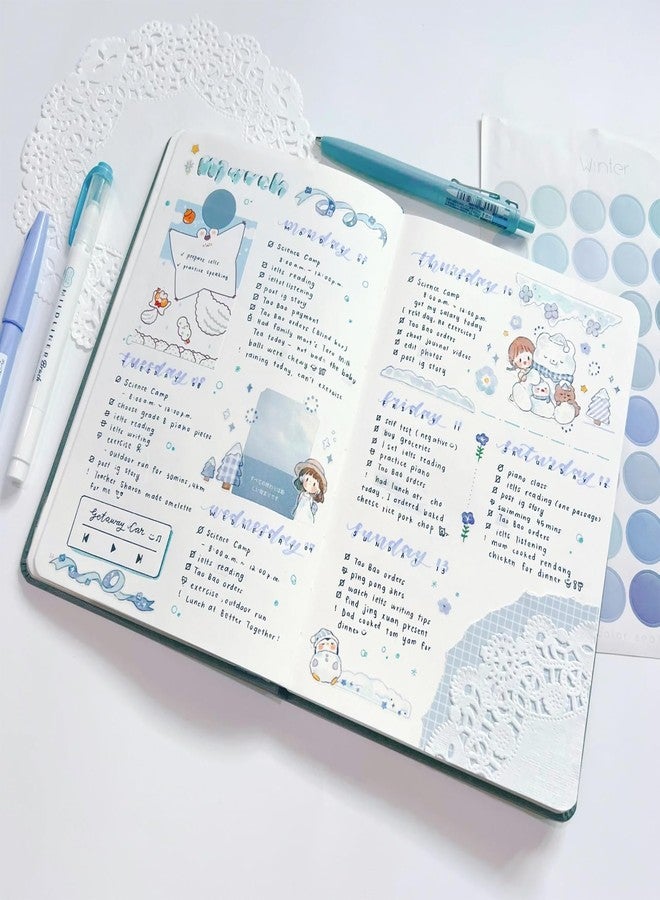 March
✓ prepare ielts
✓ practice speaking
monday 07
Science Camp
- 8:00am - 12:00pm
ielts reading
ielts listening
post ig story
Tao Bao payment
Tao Bao orders (blind box)
! had family mart's Taro Milk
Tea today - not bad! the baby
balls were chewy
raining today, can't exercise
tuesday 08
Science Camp
- 8:00am - 12:30pm
choose grade 8 piano pieces
ielts reading
ielts writing
exercise
- outdoor run for 30mins, 4km
post ig story
! teacher Sharon made omelette
for me
Getaway Car
wednesday 09
Science Camp
- 8:00am - 12:00pm
ielts reading
Tao Bao orders
exercise, outdoor run
! Lunch at Better Together!
thursday 10
Science Camp
8:00am - 12:00pm
got my salary today
(rest day, no exercise)
Tao Bao orders
shoot journal videos
edit photos
post ig story
friday 11
self test (negative)
buy groceries
1 set ielts reading
practice piano
Tao Bao orders
! had lunch at
today. I ordered baked
cheese rice pork chop
saturday 12
piano class
ielts reading (one passage)
post ig story
swimming 45mins
Tao Bao orders
ielts listening
! mum cooked rendang
chicken for dinner
sunday 13
Tao Bao orders
ping pong 2hrs
watch ielts writing tips
find jing xuan present
! Dad cooked tom yam for
dinner
Winter
MILDLINER Brush